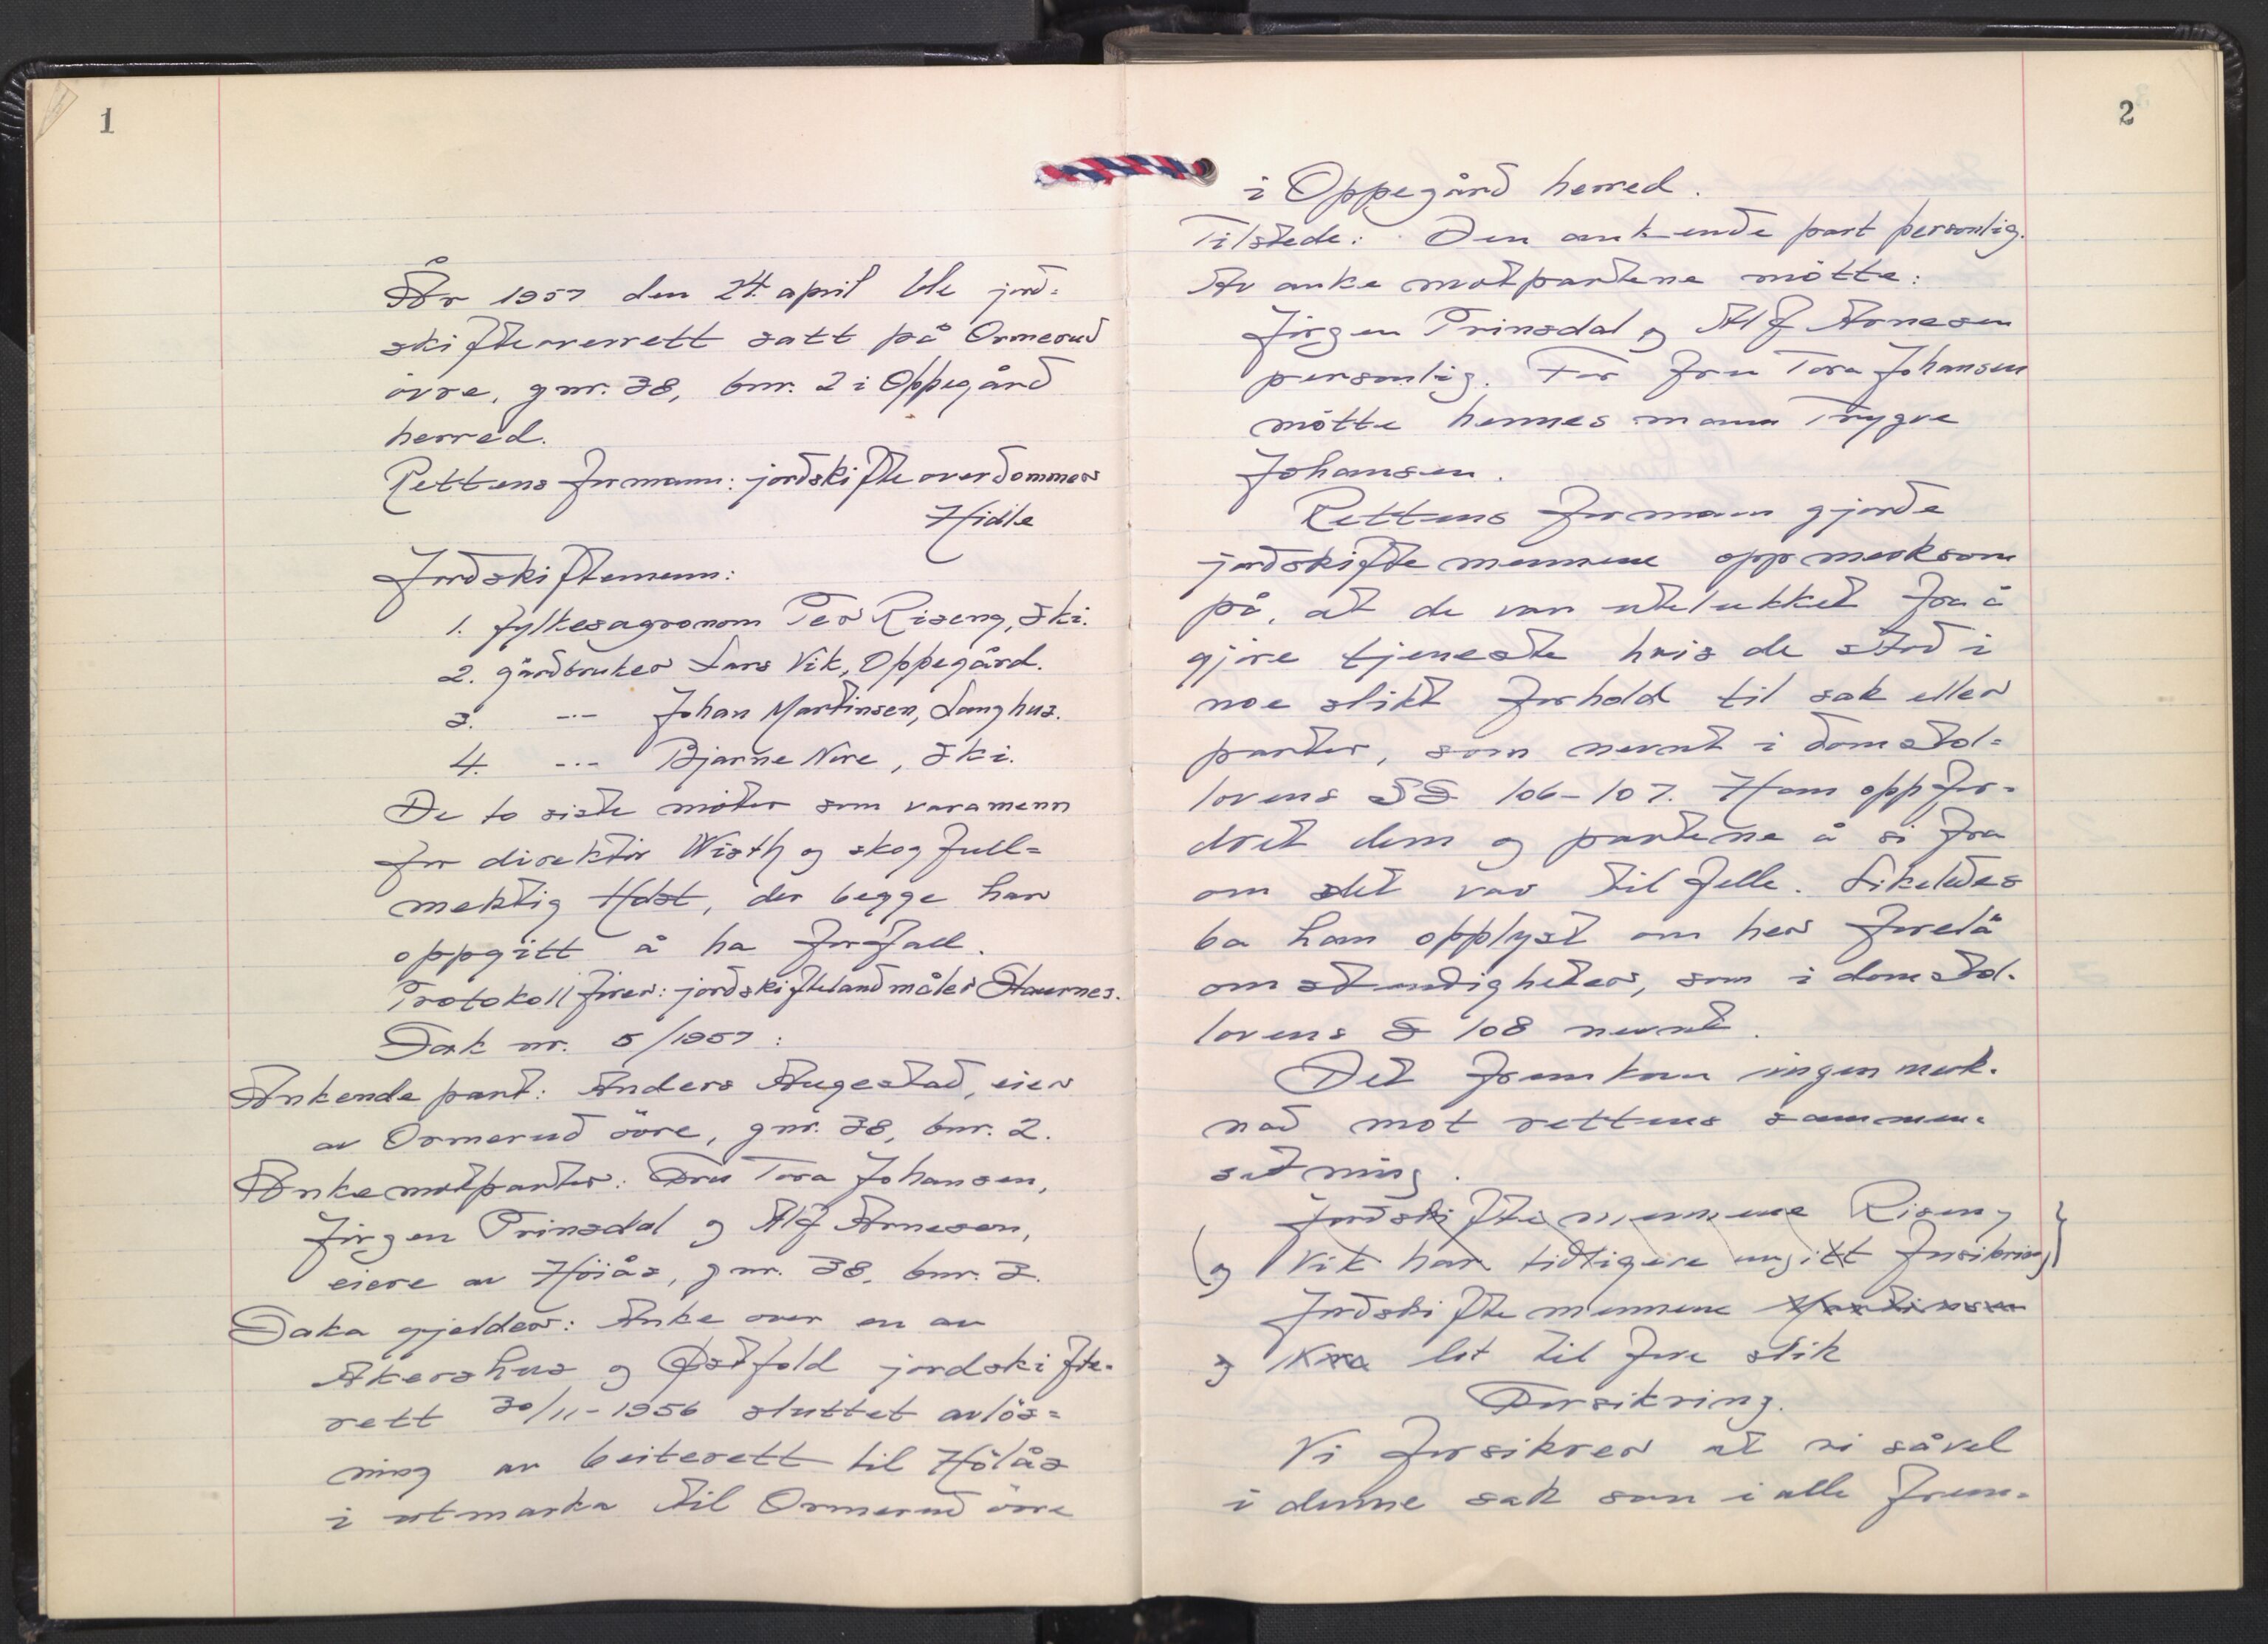 1
År 1957 den 24. april ble jord=
skifteoverrett satt på Ormerud
övre, gnr. 38, bnr. 2 i Oppegård
herred.
Rettens formann: jordskifteoverdommer
Hidle
Jordskiftemenn:
1. fylkesagronom Per Riseng, Ski.
2. gårdbruker Lars Vik, Oppegård.
3. --- Johan Martinsen, Langhus.
4. --- Bjarne Nore, Ski.
De to siste möter som varamenn
for direktör Wisth og skogfull=
mektig Holst, der begge har
oppgitt å ha forfall.
Protokollförer: jordskiftelandmåler Stavrnes.
Sak nr. 5/1957:
Ankende part: Anders Augestad, eier
av Ormerud övre, gnr. 38, bnr. 2.
Ankemotparter: Fru Tora Johansen,
Jörgen Prinsdal og Alf Arnesen,
eiere av Höiås, gnr. 38, bnr. 3.
Saka gjelder: Anke over en av
Akershus og Østfold jordskifte-
rett 30/11-1956 sluttet avlös=
ning av beiterett til Höiås
i utmarka til Ormerud övre
2
i Oppegård herred.
Tilstede: Den ankende part personlig.
Av ankemotpartene mötte:
Jörgen Prinsdal og Alf Arnesen
personlig. For fru Tora Johansen
mötte hennes mann Trygve
Johansen.
Rettens formann gjorde
jordskiftemennene oppmerksom
på, at de var utelukket fra å
gjöre tjeneste hvis de stod i
noe slikt forhold til sak eller
parter, som nevnt i domstol=
lovens §§ 106-107. Han oppfor=
dret dem og partene å si fra
om det var tilfelle. Likeledes
ba han opplyst om her forelå
omstendigheter, som i domstol-
lovens § 108 nevnt.
Det fremkom ingen merk-
nad mot rettens sammen-
setning.
Jordskiftemennene Riseng
(og Vik har tidligere avgitt forsikring)
Jordskiftemennene Martinsen
og lot til före slik
Forsikring.
Vi forsikrer at vi såvel
i denne sak som i alle frem=